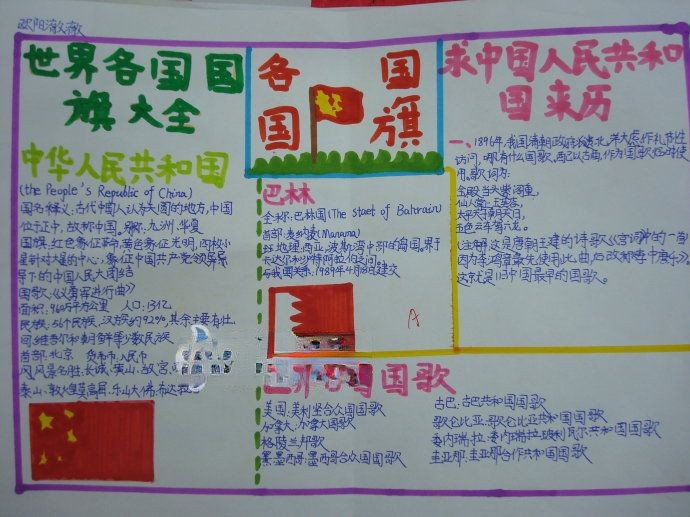 欧阳澈澈
世界各国国
旗大全
中华人民共和国
(the People's Republic of China)
国名释义:古代中国人认为天圆的地方,中国
位于正中,故称中国。别称:九洲、华夏
国旗:红色象征革命,黄色象征光明,四枚小
星针对大星的中心,象征中国共产党领导
下的中国人民大团结
国歌:《义勇军进行曲》
面积:960万平方公里 人口:13亿
民族:56个民族,汉族约92%,其余主要有壮、
回、维吾尔和朝鲜等少数民族
首都:北京 货币:人民币
风景名胜:长城、黄山、故宫、
泰山、敦煌莫高屈、乐山大佛、布达拉
各国
国旗
巴林
全称:巴林国(The staet of Bahrain)
首部:麦纳麦(Manama)
地理:西亚,波斯湾中部的岛国。界于
卡达尔和沙特阿拉伯之间。
与我国关系:1989年4月18日建交
A
国歌
美国:美利坚合众国国歌
加拿大:加拿大国歌
格陵兰邦歌
墨西哥:墨西哥合众国国歌
古巴:古巴共和国国歌
歌伦比亚:歌伦比亚共和国国歌
委内瑞拉:委内瑞拉玻利瓦尔共和国国歌
圭亚那:圭亚那合作共和国国歌
求中国人民共和
国来历
一、1896年,我国清朝政府派遣北洋大臣作礼节性
访问,哪有什么国歌,
用。歌词为:
金殿当天紫阁重,
仙人掌
太平天子朝天日,
五色云车驾六龙。
(注解:这是唐朝王建的诗歌《宫词》的一首
因为李鸿章最先使用此曲,后改称
这就是旧中国最早的国歌。